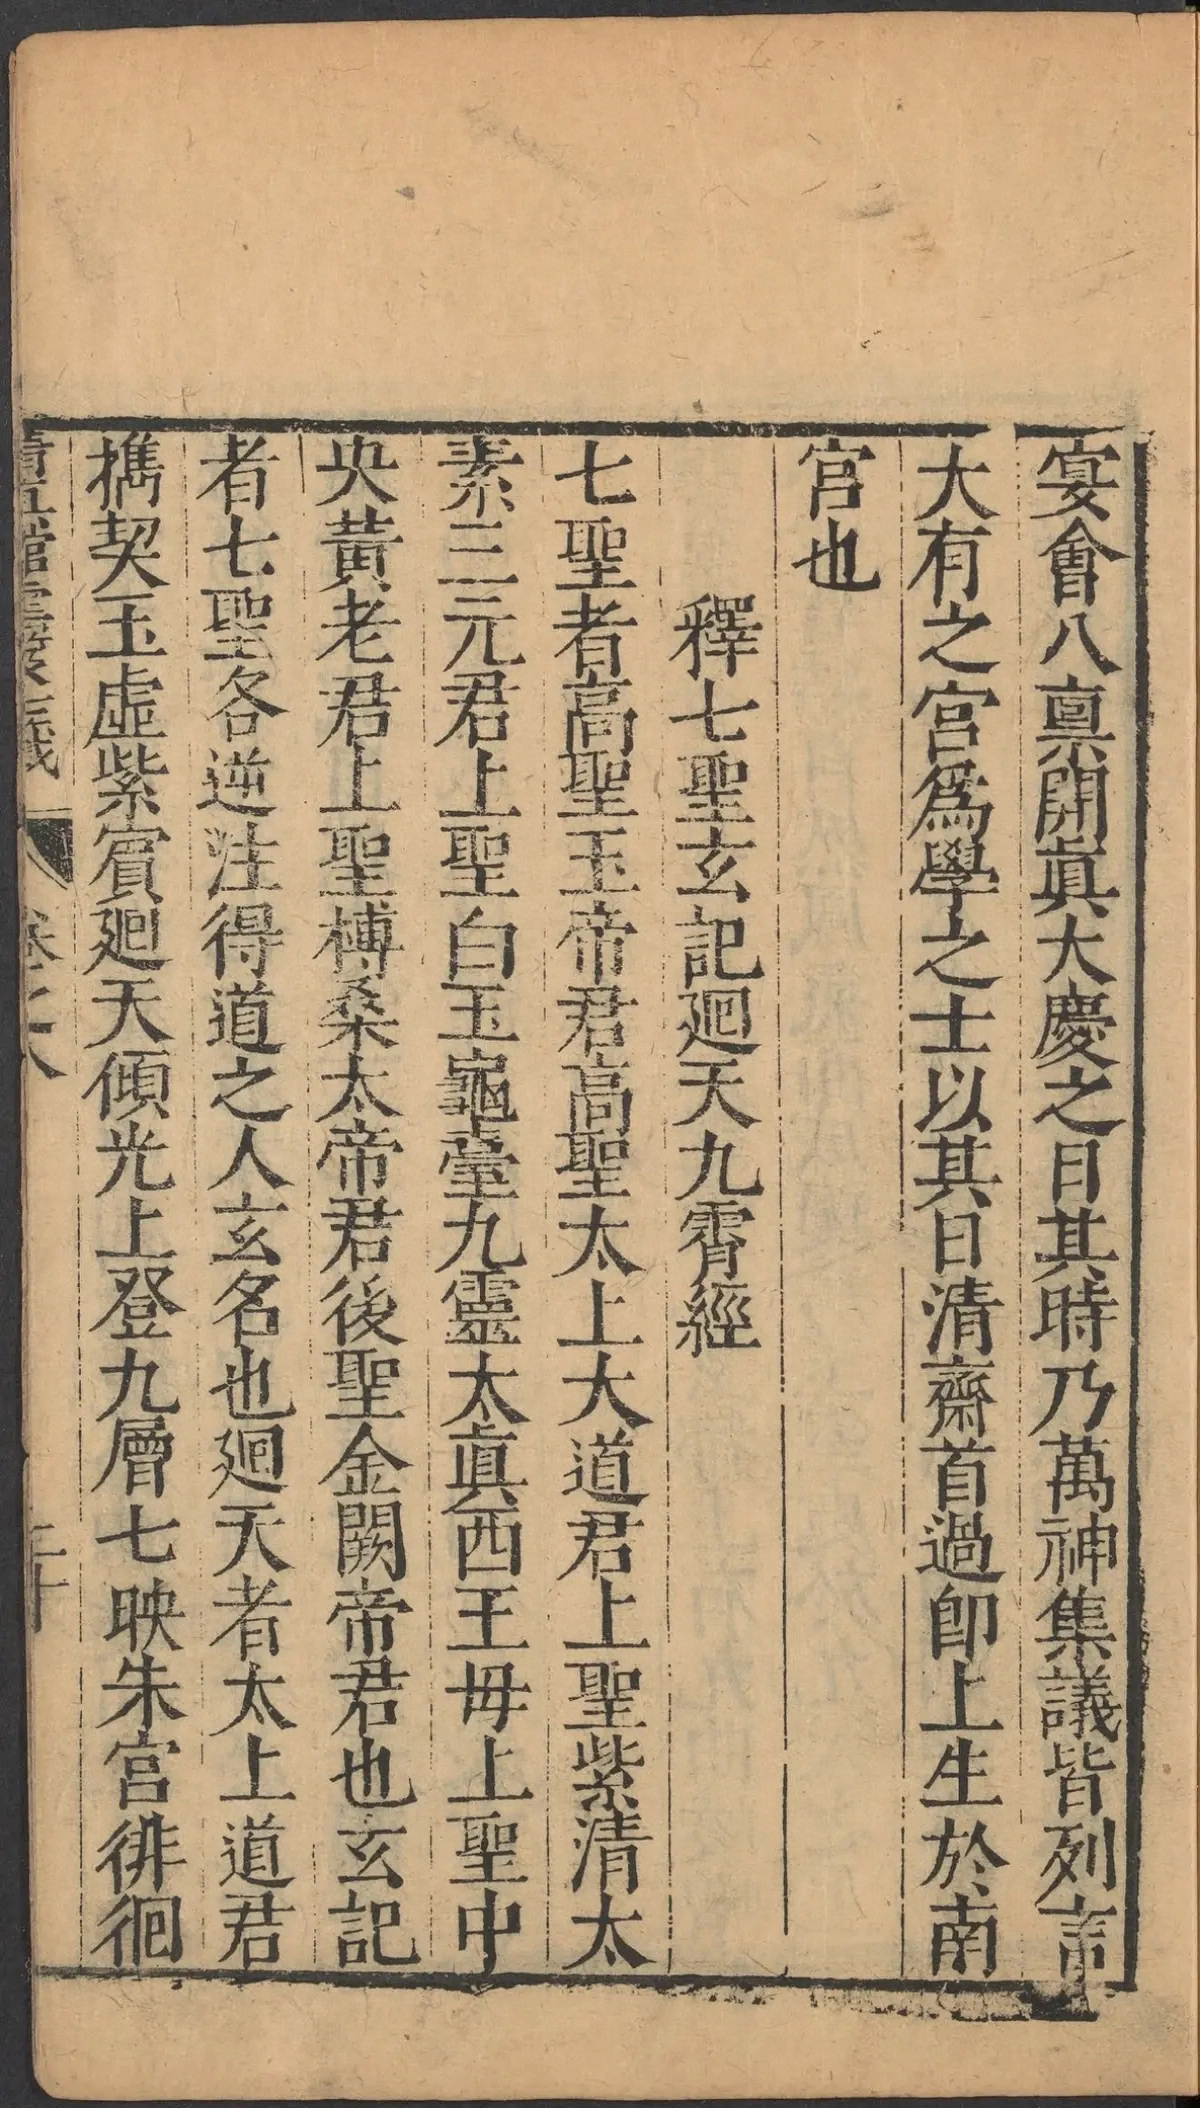 宴會八稟開眞大慶之日其時乃萬神集議皆列言
大有之宮爲學之士以其日清齋首過卽上生於南
宮也
釋七聖玄記廻天九霄經
七聖者高聖玉帝君高聖太上大道君上聖紫清太
素三元君上聖白玉龜臺九靈太眞西王母上聖中
央黃老君上聖榑桑太帝君後聖金闕帝君也玄記
者七聖各逆注得道之人玄名也廻天者太上道君
携契玉虛紫賓廻天傾光上登九層七映朱宮徘徊
卷之八